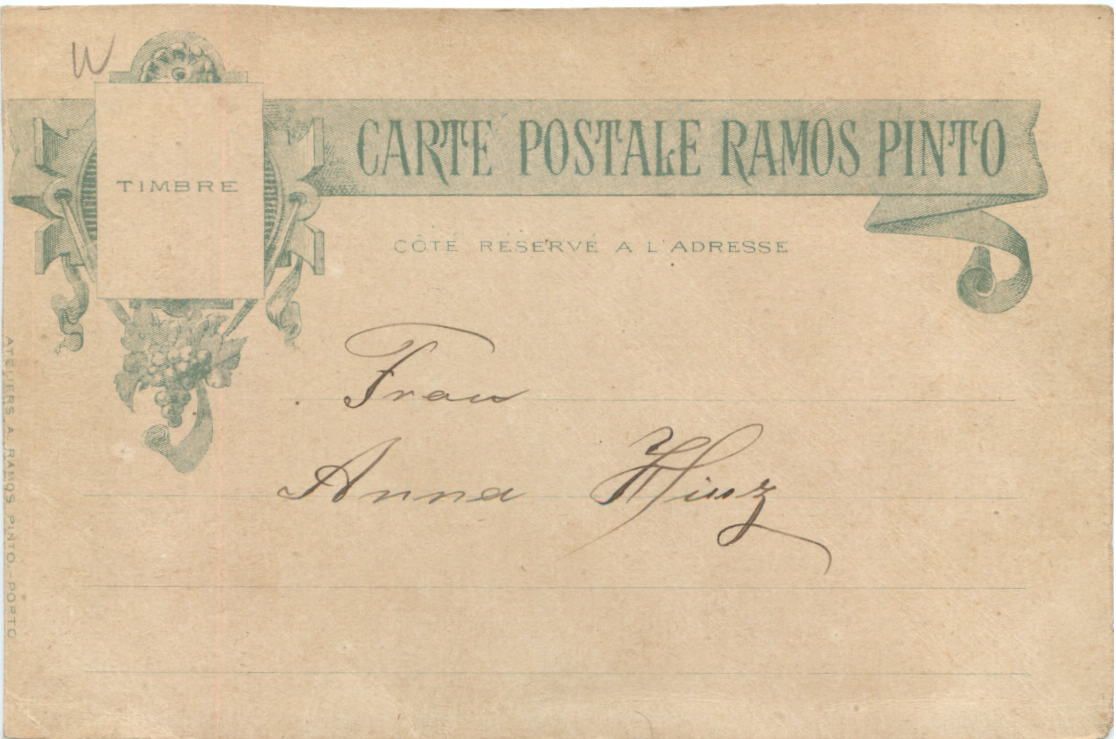 W
TIMBRE
CARTE POSTALE RAMOS PINTO
CÔTÉ RÉSERVÉ A L'ADRESSE
Frau
Anna
ATELIERS A. RAMOS PINTO - PORTO